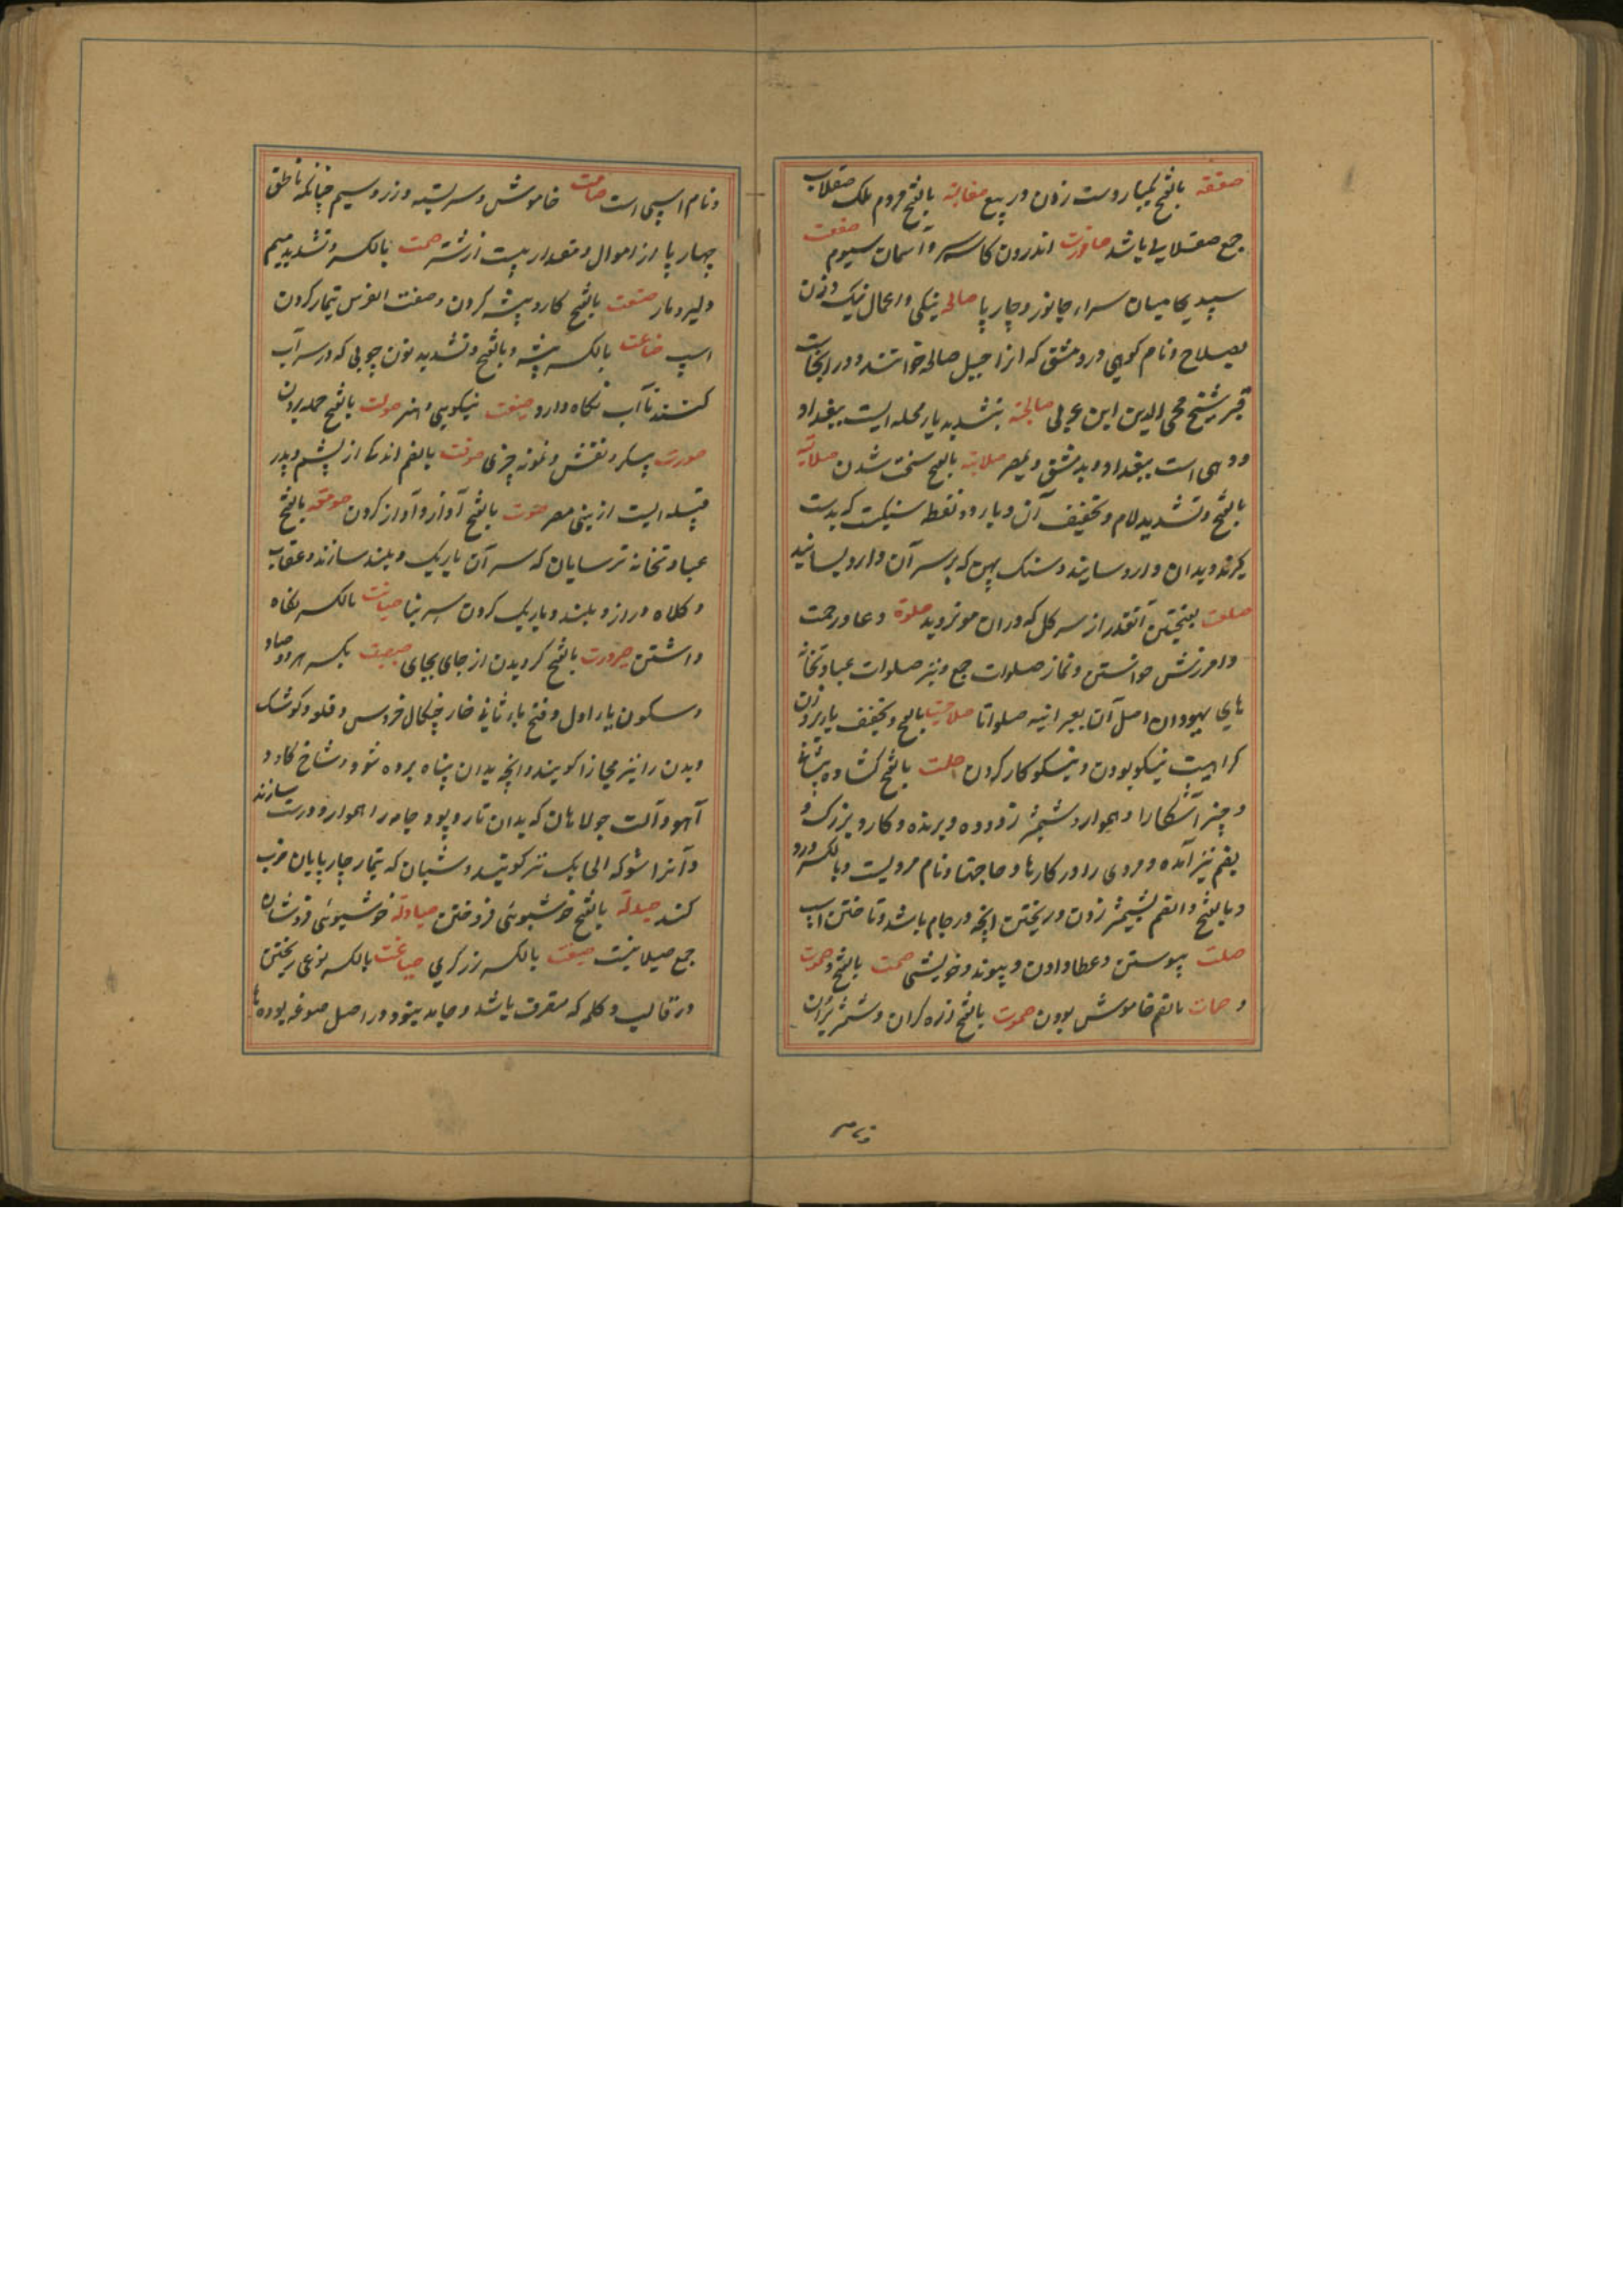 صفقه بالفتح یکبار دست زدن در بیع صقالبة بالفتح مردم ملک صقلاب
جمع صقلابی باشد صاقورت اندرون کاسه سر و آسمان سیوم صقعت
سپیدی میان سر اسپ جانور و چارپا صالحه نیکی و اعمال نیک و زن
بصلاح و نام کوهی در دمشق که انرا جبل صالحه خوانند و در انجاست
قبر شیخ محی الدین ابن عربی صالحیة بتشدید یا محله ایست ببغداد
و دهی است ببغداد و بدمشق و بمصر صلابة بالفتح سخت شدن صلایة
بالفتح و تشدید لام و تخفیف آن و یاء دو نقطه سنگیست که بدست
گیرند و بدان دارو سایند و سنگ پهن که بر سر آن دارو سایند
صلعت بفتحتین آنقدر از سر کل که در ان مو نروید صلوة دعا و رحمت
و امرزش خواستن و نماز صلوات جمع و نیز صلوات عبادتخانه
های یهودان اصل آن بعبرانیه صلواتا صلاحیت بالفتح و تخفیف یا بر وزن
کراهیت نیکو بودن و نیکو کار کردن صلت بالفتح کشاده پیشانی
و چیز آشکارا و هموار و شمشیر زدوده و برنده و کارد بزرگ و
بضم نیز آمده و مردی رسا در کارها و حاجتها و نام مردیست و بالکسر دزد
و بالفتح و الضم بشمشیر زدن و ریختن انچه در جام باشد و تاختن اسپ
صلت پیوستن و عطا دادن و پیوند و خویشی صمت بالفتح و صموت
و صمات بالضم خاموش بودن صموت بالفتح زره گران و شمشیر بران
و نام اسپی است صامت خاموش و سربسته و زر و سیم چنانکه ناطق
چهار پا از اموال و مقدار بیست از شتر صمت بالکسر و تشدید میم
دلیر و مار صنعت بالفتح کار و پیشه کردن و صنعت الفرس تیمار کردن
اسپ صناعت بالکسر پیشه و بالفتح و تشدید نون چوبی که در سر آب
کنند تا آب نگاه دارد صنیعت نیکویی و هنر صولت بالفتح حمله بردن
صورت پیکر و نقش و نمونه چیزی صوفت بالضم اندک از پشم و پدر
قبیله ایست از بنی مضر صوت بالفتح آواز و آواز کردن صومعه بالفتح
عبادتخانه ترسایان که سر آن باریک و بلند سازند و عقاب
و کلاه دراز و بلند و باریک کردن سر بنا صیانت بالکسر نگاه
داشتن صیرورت بالفتح گردیدن از جای بجای صیصیت بکسر هر دو صاد
و سکون یاء اول و فتح یاء ثانی خار چنگال خروس و قلعه و کوشک
و بدن را نیز مجازا گویند و انچه بدان پناه برده شود و شاخ گاو و
آهو و آلت جولاهان که بدان تار و پود جامه را هموار و درست سازند
و آنرا شوکه الحایک نیز گویند و شبان که تیمار چارپایان خوب
کند صیدلة بالفتح خوشبوئی فروختن صیادلة خوشبوئی فروشان
جمع صیدلانیست صیغت بالکسر زرگری صیاغت بالکسر نوعی ریختن
در قالب و کلمه که متصرف باشد و جامد نبود و در اصل صوغه بوده